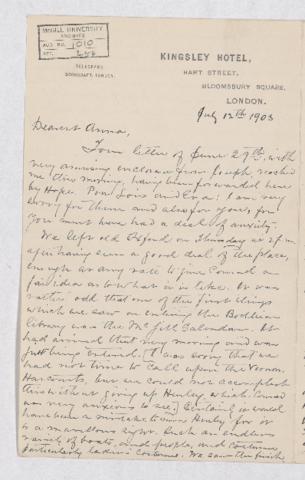 McGILL UNIVERSITY
ARCHIVES
ACC. NO. 1010
REF.
TELEGRAMS
KINGSLEY HOTEL,
HART STREET,
BLOOMSBURY SQUARE,
LONDON.
July 12th 1903
Dearest Anna,
Your letter of June 29th, with
very amusing enclosure from Joseph reached
me this morning, having been forwarded here
by Hope. Poor Lois and Eva! I am very
sorry for them and also for you, for
you must have had a deal of anxiety.
We left old Oxford on Thursday at 2 p.m.
after having seen a good deal of the place,
enough at any rate to give Conrad a
fair idea as to what it is like. It was
rather odd that one of the first things
which we saw on entering the Bodleian
library was the McGill Calendar. It
had arrived that very morning and was
just being entered. I was sorry that we
had not time to call upon the Vernon
Harcourts, but we could not accomplish
this without giving up Henley which Conrad
was very anxious to see. Certainly it would
have been a mistake to miss Henley for it
is a marvellous sight. Such an endless
variety of boats, and people, and costumes
particularly ladies' costumes. We saw the